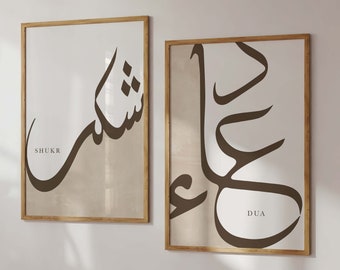 شكر
SHUKR
دعاء
DUA